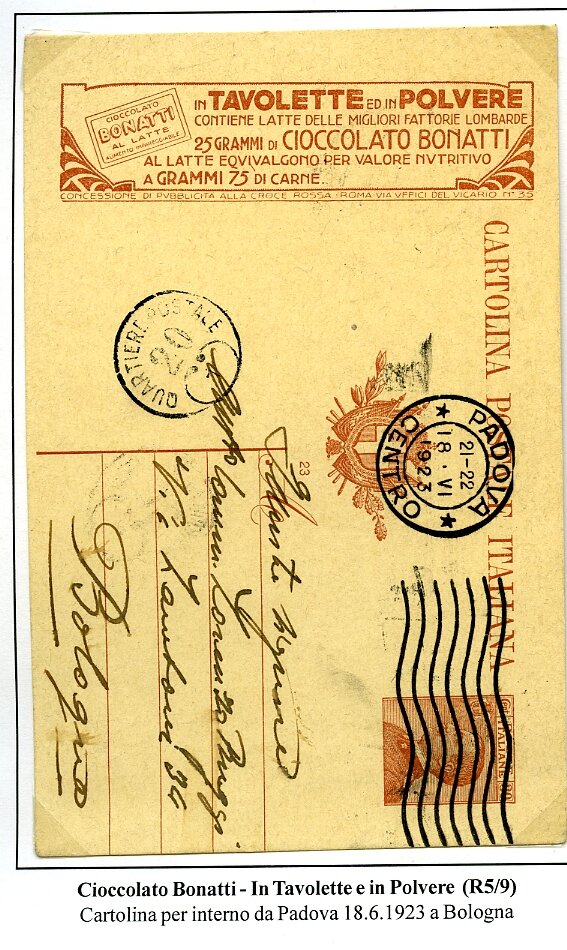 CIOCCOLATO
BONATTI
AL LATTE
IN TAVOLETTE ED IN POLVERE
CONTIENE LATTE DELLE MIGLIORI FATTORIE LOMBARDE
25 GRAMMI DI CIOCCOLATO BONATTI
AL LATTE EQVIVALGONO PER VALORE NVTRITIVO
A GRAMMI 75 DI CARNE.
CONCESSIONE DI PVBBLICITA ALLA CROCE ROSSA · ROMA VIA VFFICI DEL VICARIO N° 35
CARTOLINA POSTALE ITALIANA
QUARTIERE POSTALE
20
PADOVA
21-22
18 · VI
1923
CENTRO
23
Bologna
Cioccolato Bonatti - In Tavolette e in Polvere (R5/9)
Cartolina per interno da Padova 18.6.1923 a Bologna